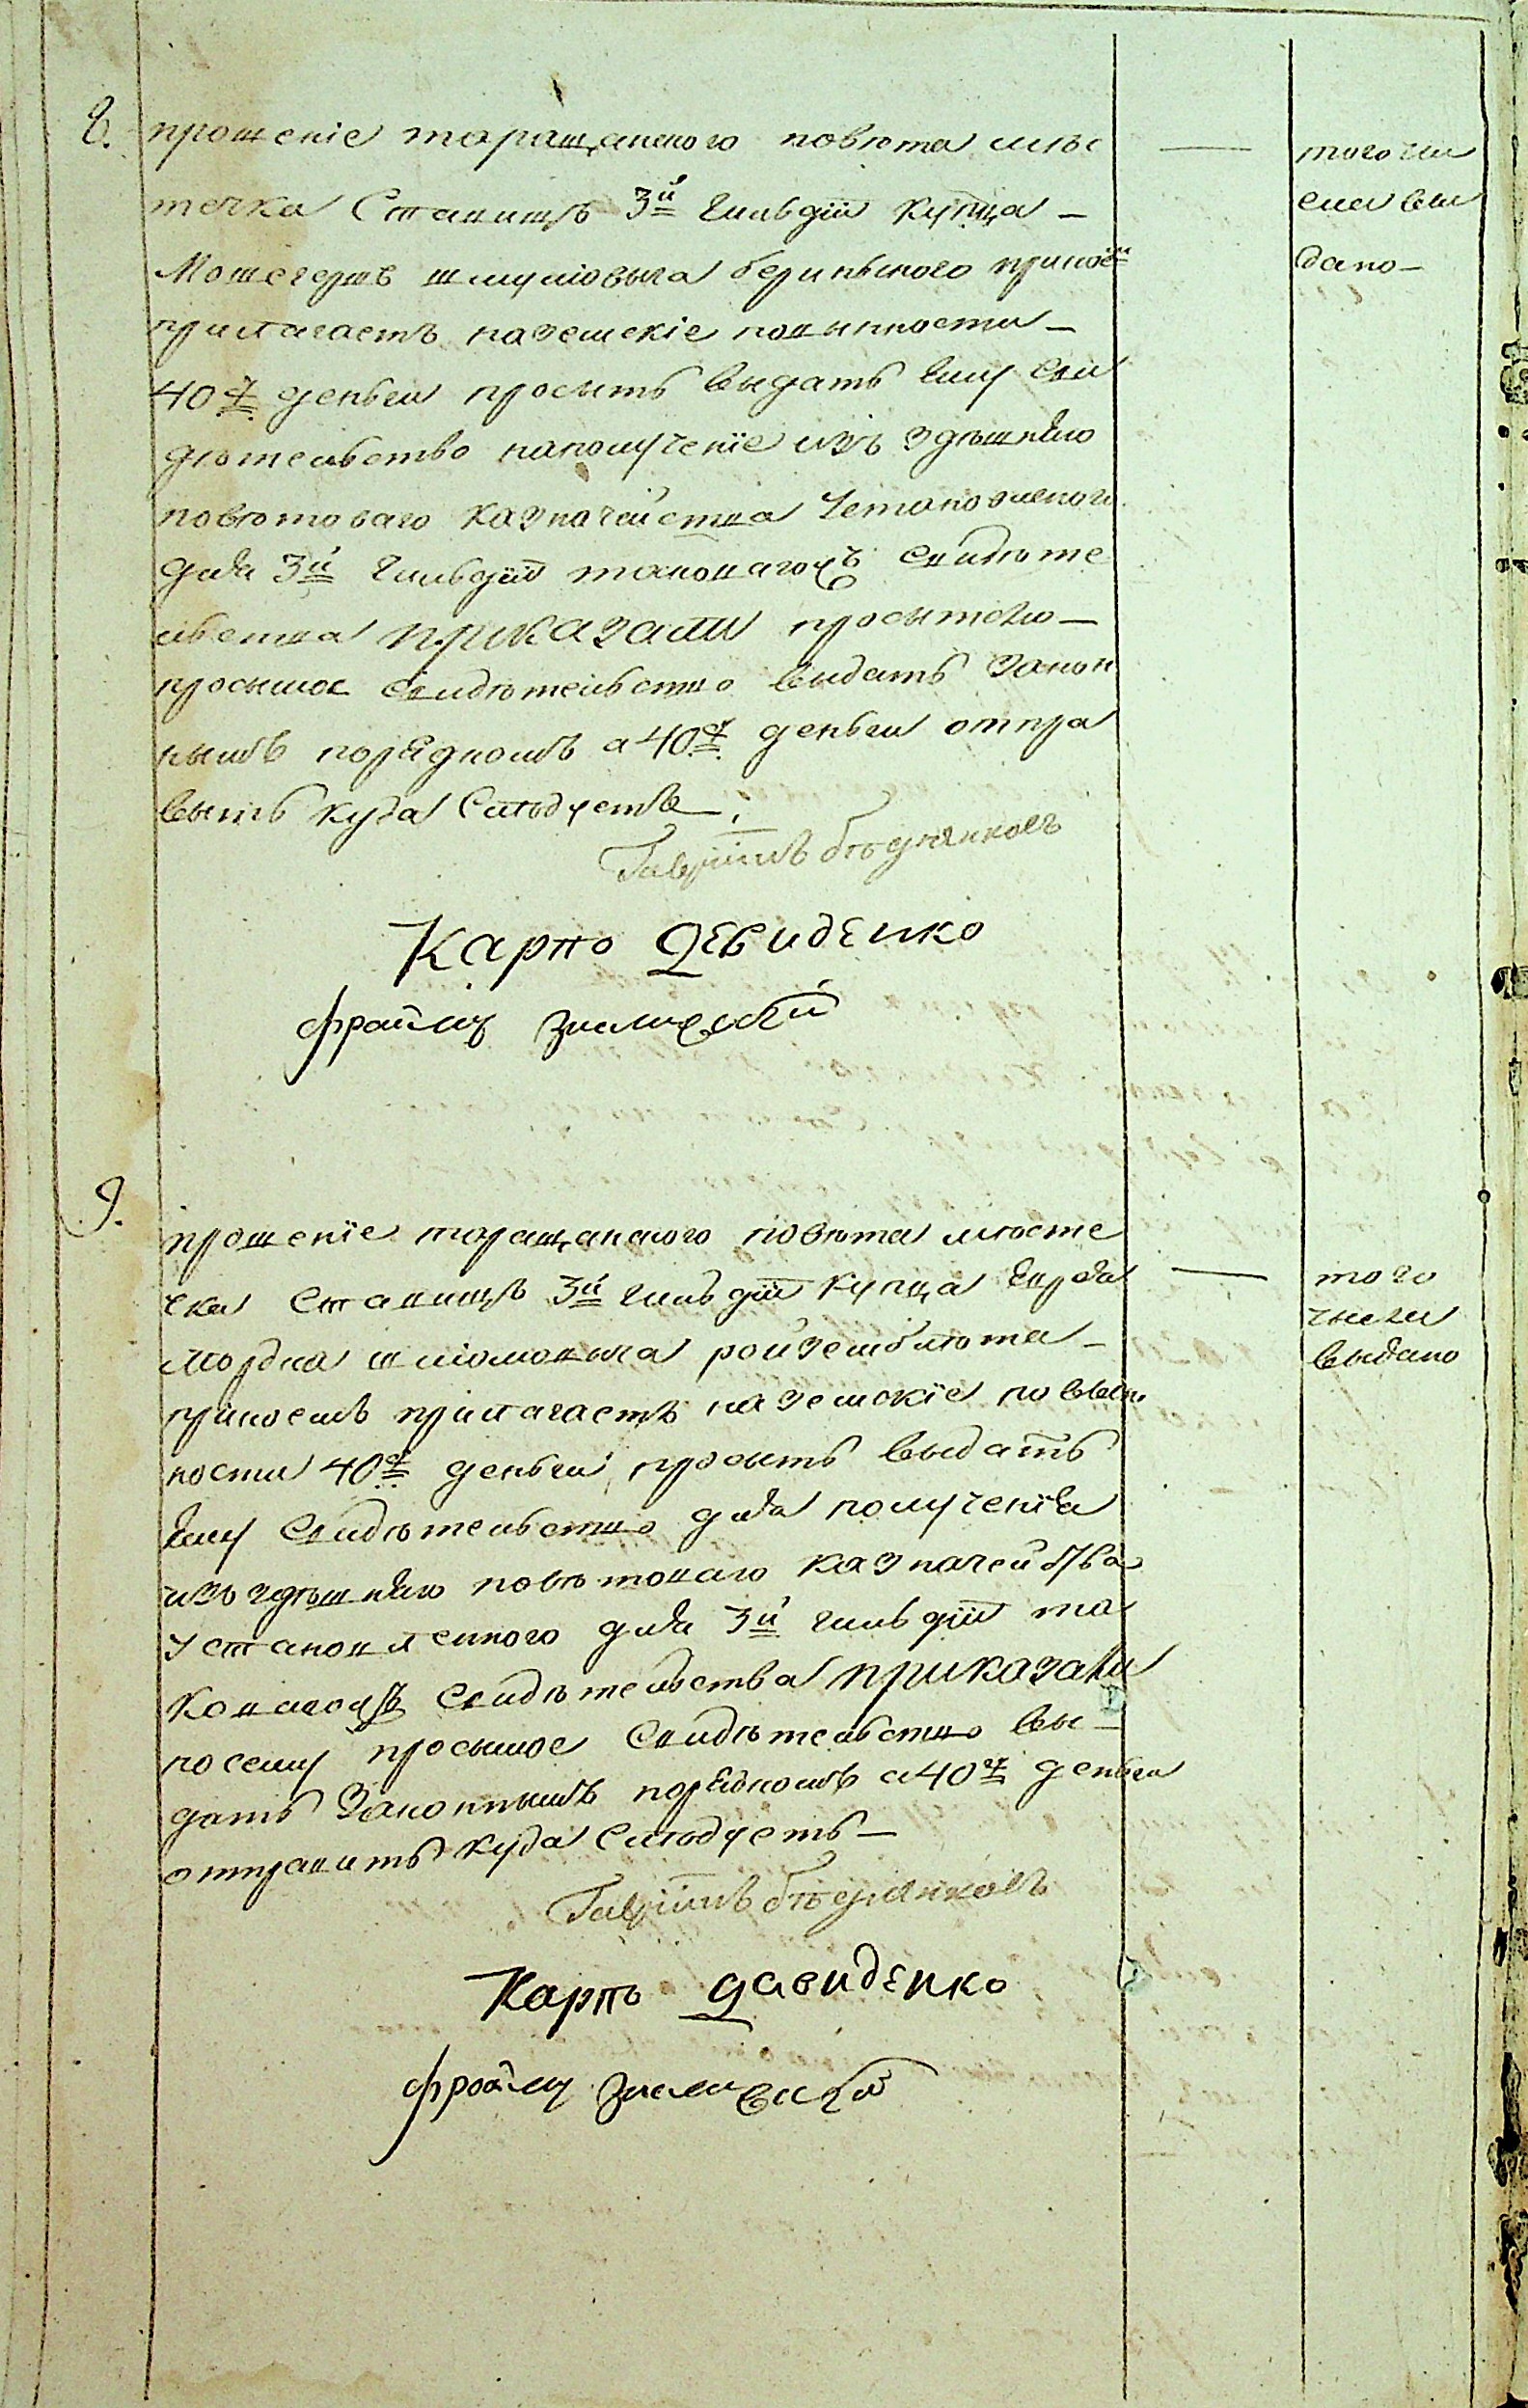 8.
прошеніе таращанского повѣта мѣс
течка Ставищъ 3й гильдіи купца —
Мошегершъ шмулiовыча беринского приноси
прилагаетъ на земскіе повынности —
40 деньги просытъ выдать ему сви
дѣтельство на получение изъ здѣшняго
повѣтоваго казначейства установленого
для 3й гильдіи таковагожъ свидѣте
льства приказали просытелю —
просымое свидѣтельство выдать закон
нымъ порядкомъ а 40 деньги отпра
выть куда слѣдуетъ.
Гавріилъ бѣдняковъ
Карпо Девиденко
того чи
сла вы
дано —
9.
прошеніе таращанского повѣта мѣсте
чка ставищъ 3й гильдіи купца
мордка шліомовыча ройземблюта —
приноситъ прилагаетъ на земскіе повын
ности 40 деньги просытъ выдать
ему свидѣтельство для полученія
изъ здѣшняго повѣтоваго казначейства
установленного для 3й гильдіи та
ковагожъ свидѣтельства приказали
посему просымое свидѣтельство вы —
дать законнымъ порядкомъ а 40 деньги
отправить куда слѣдуетъ —
Гавріилъ бѣдняковъ
Карпъ давиденко
того
числа
выдано